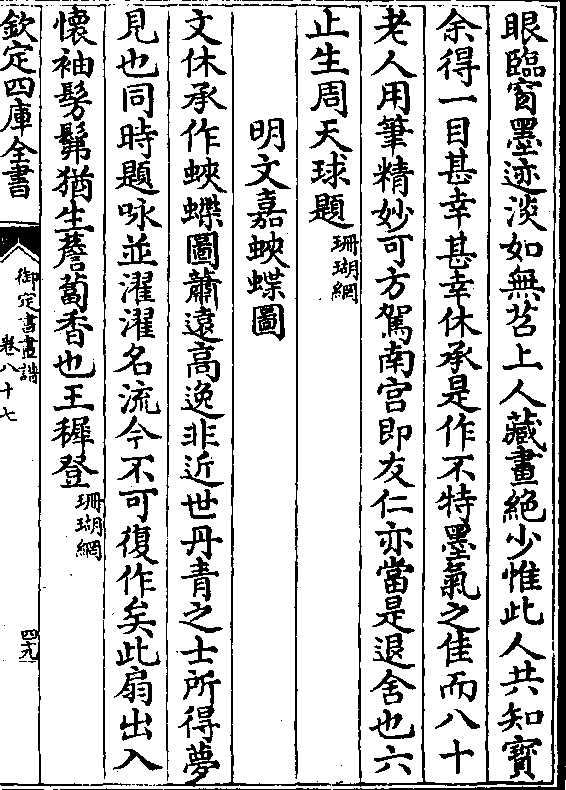 眼臨窗墨迹淡如無苕上人藏畫絶少惟此人共知寳
余得一目甚幸甚幸休承是作不特墨氣之佳而八十
老人用筆精妙可方駕南宫即友仁亦當是退舍也六
止生周天球題珊瑚網
明文嘉蛺蝶圖
文休承作蛺蝶圖蕭遠高逸非近世丹青之士所得夢
見也同時題咏並濯濯名流今不可復作矣此扇出入
懷袖髣髴猶生薝蔔香也王穉登珊瑚網
欽定四庫全書
御定書畫譜
卷八十七
四九